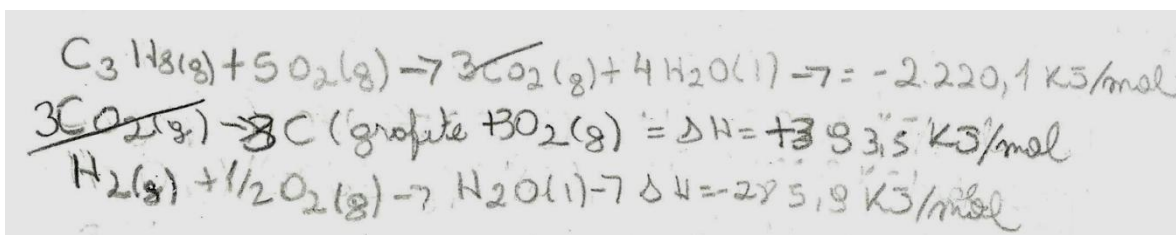 C3H8(g) + 5 O2(g) → 3CO2(g) + 4 H2O(l) → = -2.220,1 KJ/mol
3CO2(g) → 3C (grafite + 3O2(g) = ΔH = +393,5 KJ/mol
H2(g) + 1/2 O2(g) → H2O(l) → ΔH = -285,9 KJ/mol